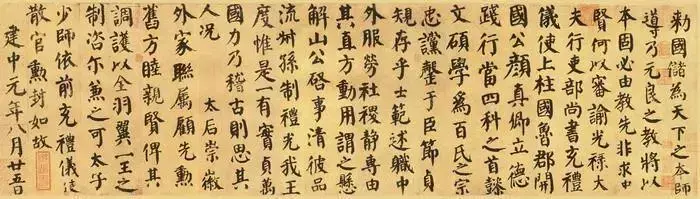 勅國儲為天下之本師
導乃元良之教將以
本固必由教先非求中
賢何以審諭光祿大
夫行吏部尚書充禮
儀使上柱國魯郡開
國公顏真卿立德
踐行當四科之首懿
文碩學為百氏之宗
忠讜罄于臣節貞
規存乎士範述職中
外服勞社稷靜專由
其直方動用謂之懸
解山公啓事清彼品
流叔孫制禮光我王
度惟是一有實貞萬
國力乃稽古則思其
人况 太后崇徽
外家聯屬顧先勳
舊方睦親賢俾其
調護以全羽翼一王之
制咨尔兼之可太子
少師依前充禮儀使
散官勳封如故
建中元年八月廿五日